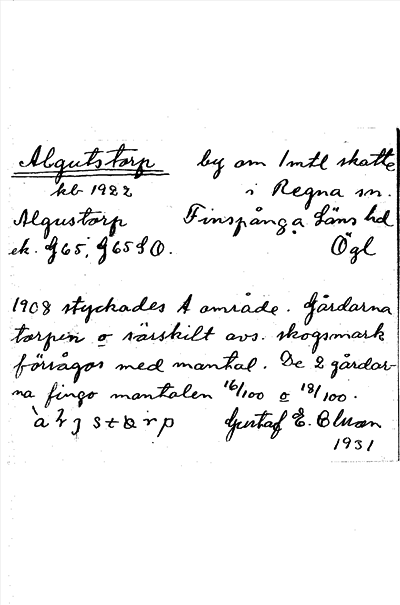 Algutstorp by om 1 mtl skatte
kb 1922 i Regna sn.
Algustorp Finspånga Läns hd
ek. G65, G65SO. Ögl
1908 styckades 1 område. Gårdarna
torpen o särskilt avs. skogsmark
försågos med mantal. De 2 gårdar-
na fingo mantalen 16/100 o 18/100.
Gustaf E.
1931